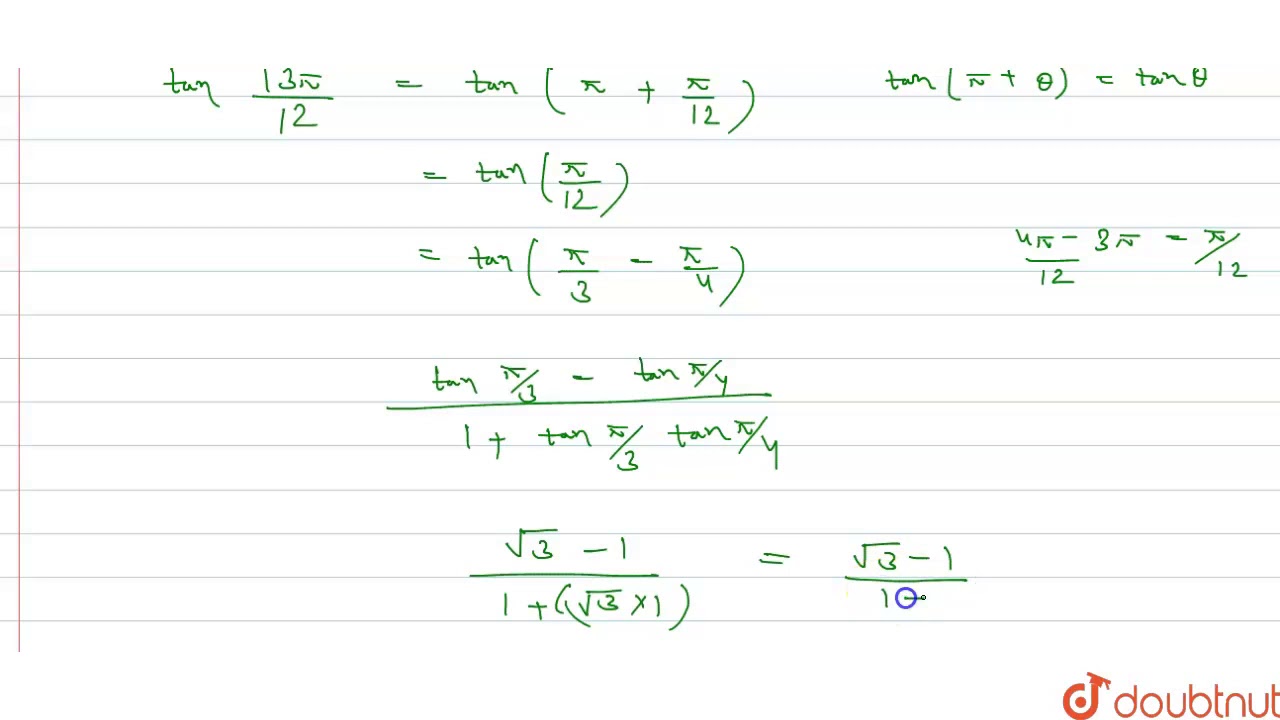 tan 13π/12 = tan(π + π/12) tan(π + θ) = tanθ
= tan(π/12)
= tan(π/3 - π/4) 4π - 3π/12 = π/12
tan π/3 - tan π/4
1 + tan π/3 tan π/4
√3 - 1 = √3 - 1
1 + (√3 × 1) 1
doubtnut